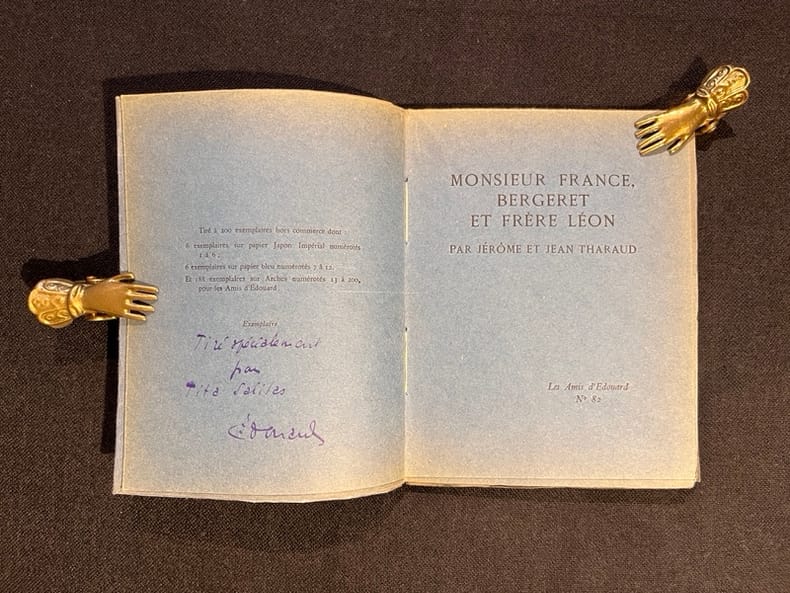 Tiré à 200 exemplaires hors commerce dont :
6 exemplaires sur papier Japon Impérial numérotés
1 à 6 ;
6 exemplaires sur papier bleu numérotés 7 à 12.
Et 188 exemplaires sur Arches numérotés 13 à 200,
pour les Amis d'Edouard
Exemplaire
Tiré spécialement
Edouard
MONSIEUR FRANCE,
BERGERET
ET FRÈRE LÉON
PAR JÉRÔME ET JEAN THARAUD
Les Amis d'Edouard
Nº 82